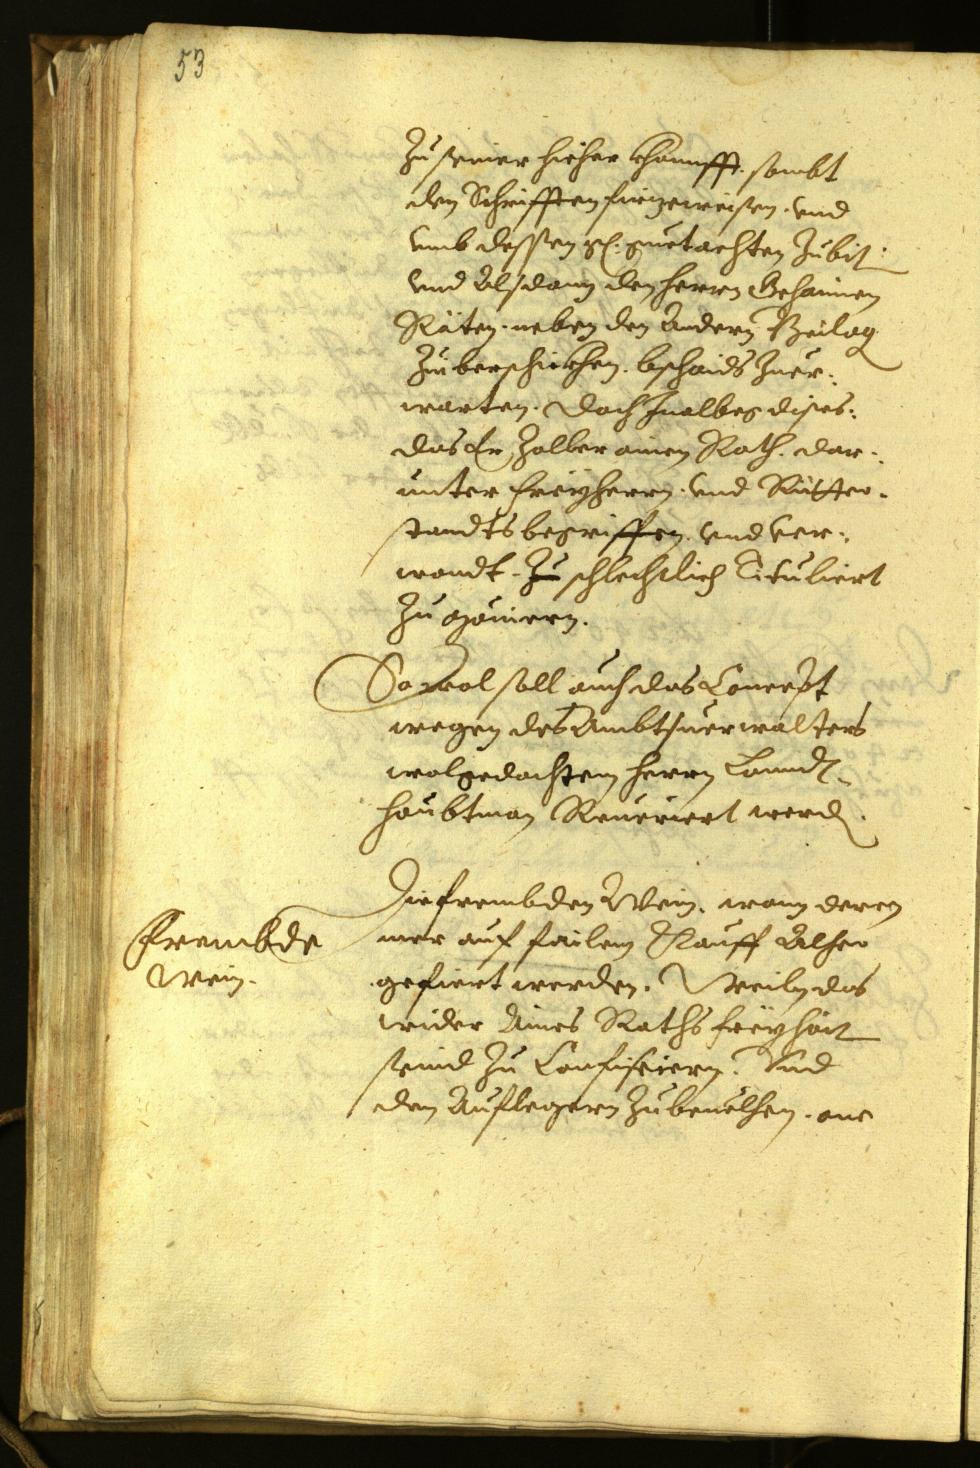 53
Zu seiner hieher khonnfft. sambt
den Schrifften fürzeweisen. vnd
vmb dessen gl: guetachten Zubit:
vnd Alsdann den herrn Gehaimen
Räten. neben den Andern Beilag
Zuüberschickhen. beschaids Zuer:
warten. Doch Inalbeg dises:
das Er Zolber ainen Rath. dar:
unter freyherrn. vnd Ritter:
standts begriffen. vnd ver:
wandt. Zu schlechtlich Tituliert
Zu anmern.
So wol soll auch das Concept
wegen des Ambtsuerwalters
wolgedachtem herrn Lannd:
haubtman Reueriert werd.
Frembde
Wein.
Die frembden Wein. wann deren
mer auf failem Kauff Alher
gefiert werden. Weiln das
wider Aines Raths freyhait
seind Zu Confisciern. Vnd
den Auflegern Zubeuelhen. ane